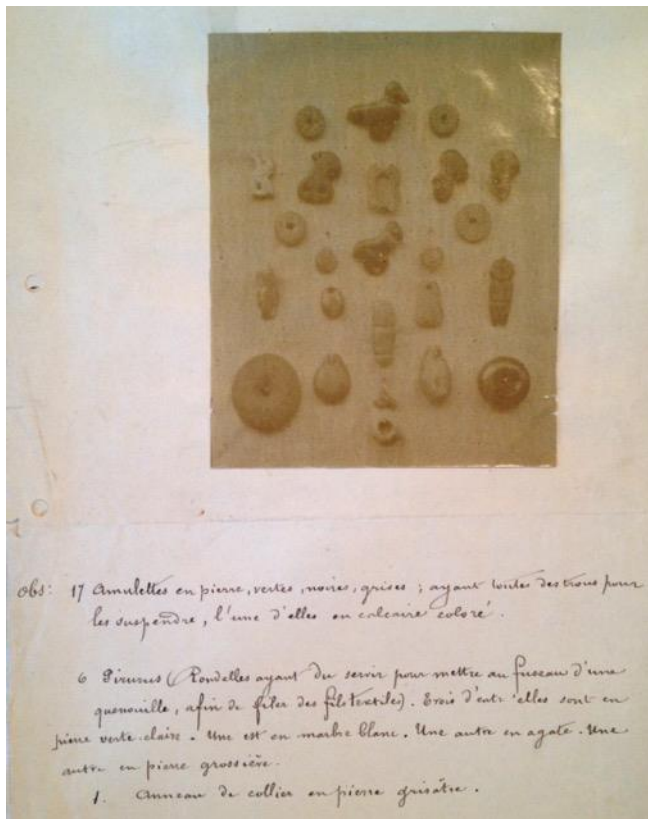 Obs: 17 Amulettes en pierre, vertes, noires, grises ; ayant toutes des trous pour
les suspendre, l'une d'elles en calcaire coloré.
6 Pirurus (Rondelles ayant du servir pour mettre au fuseau d'une
quenouille, afin de filer des fils textiles). Trois d'entr'elles sont en
pierre verte claire. Une est en marbre blanc. Une autre en agate. Une
autre en pierre grossière.
1. Anneau de collier en pierre grisâtre.